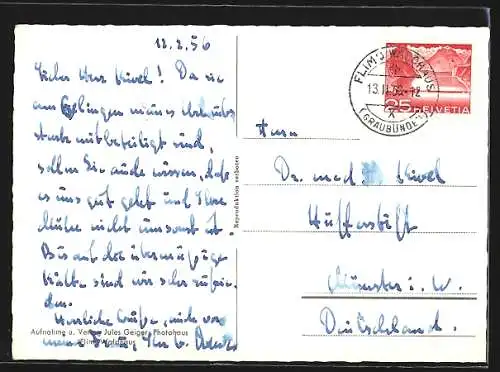 12.2.56
Lieber Herr Kiwel! Da sie
am Gelingen meines Urlaubs
stark mitbeteiligt sind,
sollen Sie auch wissen, daß
es uns gut geht und Ihre
Mühe nicht umsonst ist.
Bis auf die übermäßige
Kälte sind wir sehr zufrie-
den.
Herzliche Grüße, auch von
meiner Frau, Ihr
Aufnahme u. Verlag Jules Geiger, Photohaus
Flims-Waldhaus
Reproduktion verboten
FLIMS WALDHAUS
13.II.56.-12
(GRAUBÜNDEN)
25 HELVETIA
Herrn
Dr. med Kiwel
Hüfferstift
Münster i. W.
Deutschland.